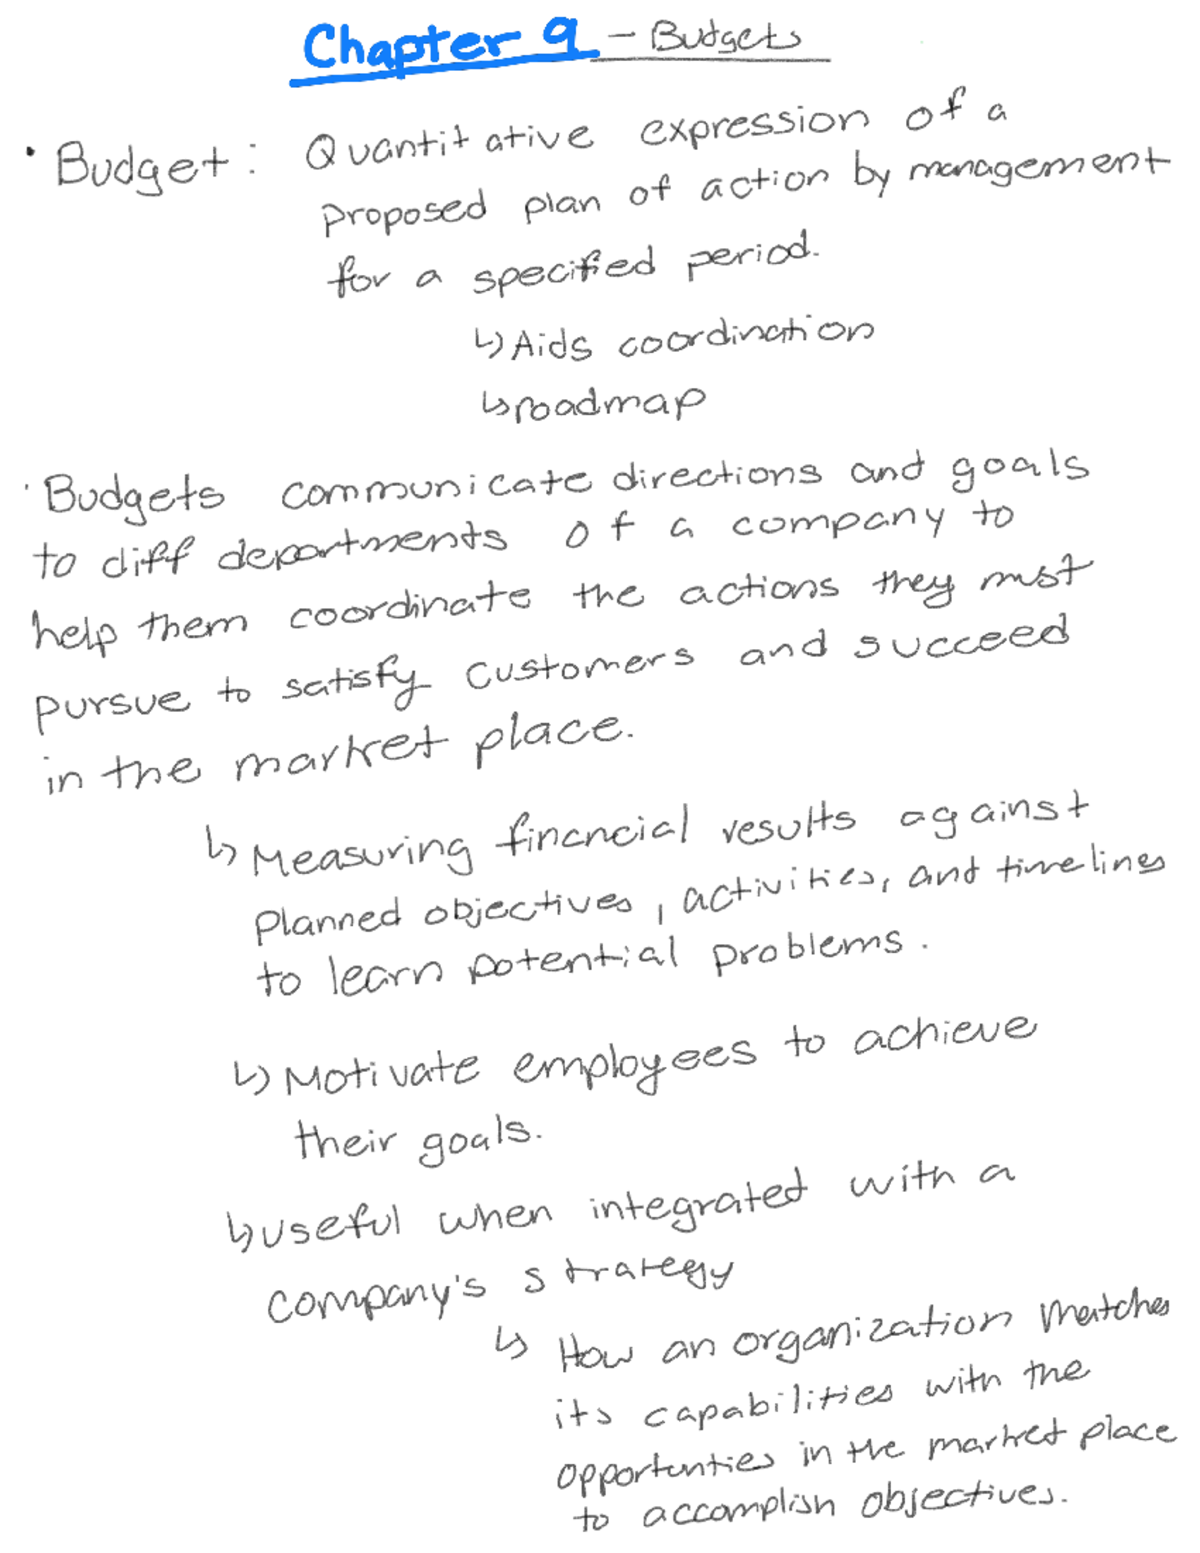 Chapter 9 - Budgets
• Budget: Quantitative expression of a
proposed plan of action by management
for a specified period.
↳ Aids coordination
↳ roadmap
• Budgets communicate directions and goals
to diff departments of a company to
help them coordinate the actions they must
pursue to satisfy customers and succeed
in the market place.
↳ Measuring financial results against
planned objectives, activities, and timelines
to learn potential problems.
↳ Motivate employees to achieve
their goals.
↳ useful when integrated with a
company's strategy
↳ How an organization matches
its capabilities with the
opportunities in the market place
to accomplish objectives.